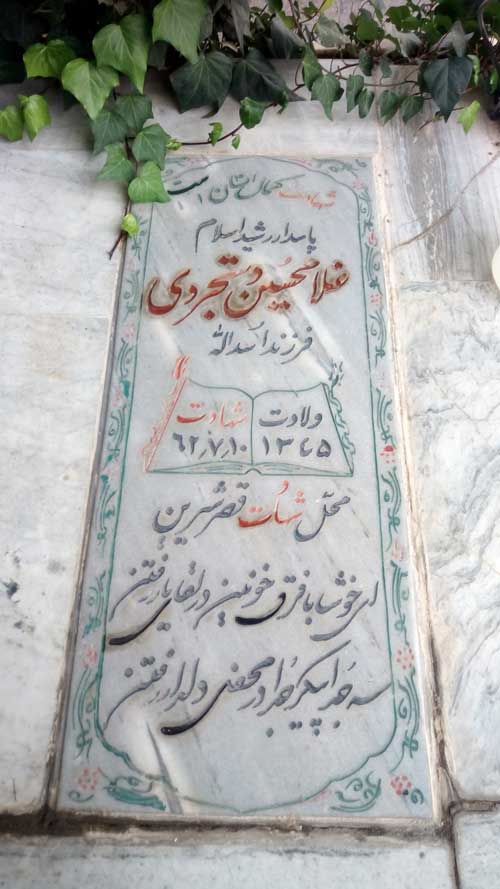 شهادت کمال انسان است
پاسدار رشید اسلام
غلامحسین دستجردی
فرزند اسدالله
ولادت شهادت
۱۳۴۵ ۶۲٫۷٫۱۰
محل شهادت قصرشیرین
ای خوشا با فرق خونین در لقای یار رفتن
سر جدا پیکر جدا در محفل دلدار رفتن